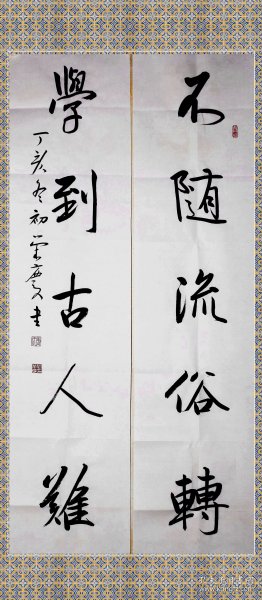 不随流俗轉
學到古人難
丁亥冬初
書